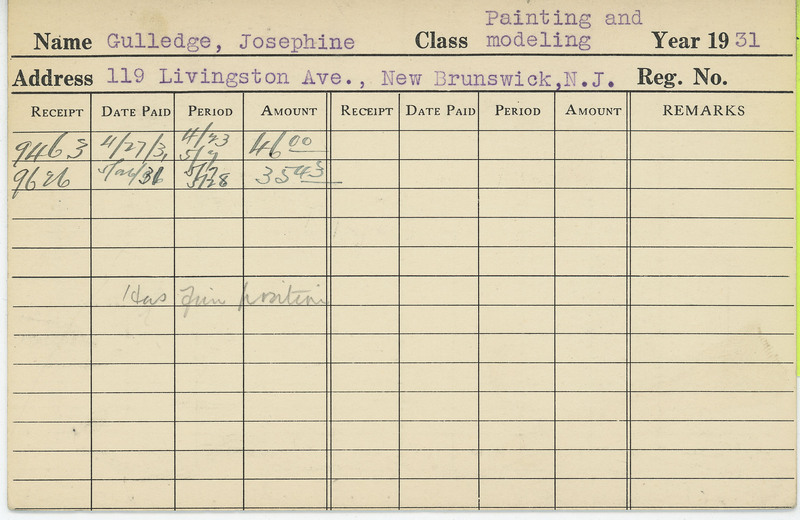 Name Gulledge, Josephine Class Painting and modeling Year 19 31
Address 119 Livingston Ave., New Brunswick, N.J. Reg. No.
RECEIPT DATE PAID PERIOD AMOUNT RECEIPT DATE PAID PERIOD AMOUNT REMARKS
9463 4/27/31 4/23 5/7 46 00
9626 5/28 35 43
Has position